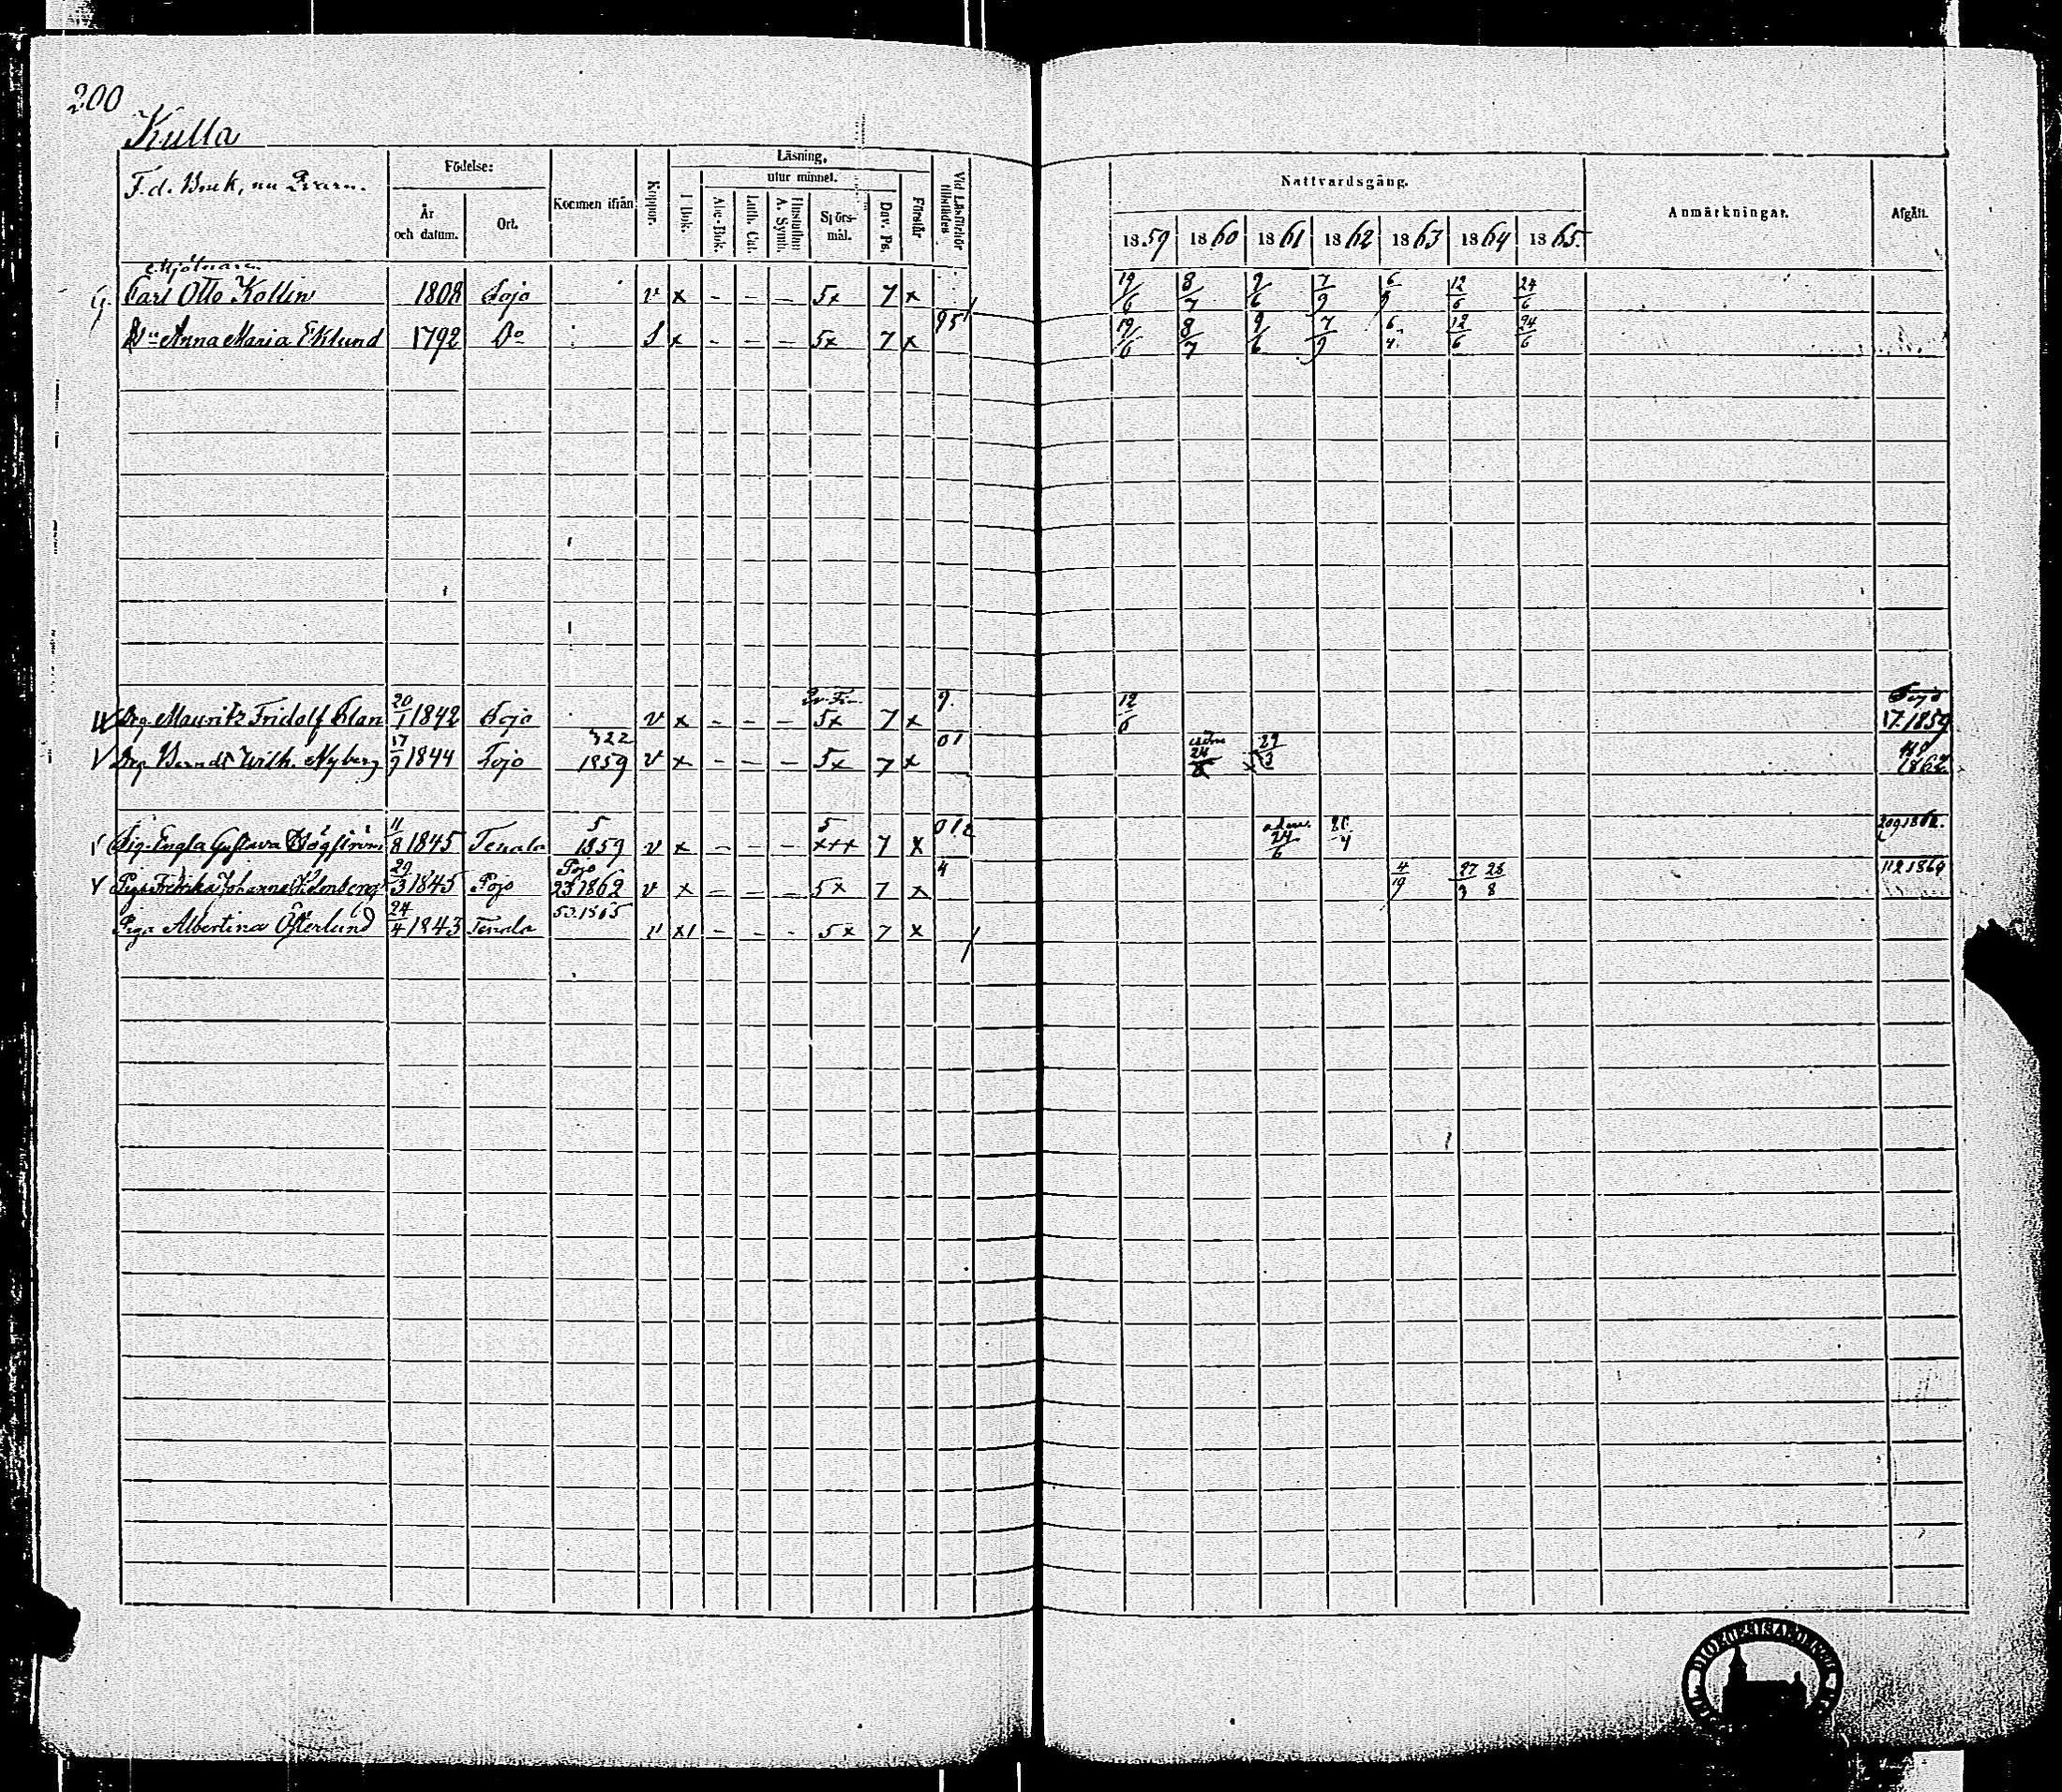 200
Kulla
F.d. Bruk, nu Qvarn.
Födelse:
År och datum.
Ort.
Kommen ifrån
Koppor.
Läsning,
I Bok.
utur minnet.
Abc-Bok.
Luth. Cat.
Hustaflan A. Symb.
Spörsmål.
Dav. Ps.
Förstår
Vid Läsförhör tillstädes
Nattvardsgång.
1859 1860 1861 1862 1863 1864 1865.
Anmärkningar.
Afgått.
Mjölnaren
Carl Otto Kollin 1808 Pojo v x - - - 5x 7 x 19/6 8/7 9/6 7/9 6 12/6 24/6
Anna Maria Eklund 1792 Do S x - - - 5x 7 x 95 19/6 8/7 9/6 7/9 6/4 12/6 24/6
Drg. Mauritz Fridolf Klan 20/1 1842 Pojo v x - - - 5x 7 x 9. 12/6 Pojo 17. 1859
Drg. Berndt Wilh. Nyberg 17/9 1844 Pojo 322 1859 v x - - - 5x 7 x 01 24 29/3 1862
Pig. Engla Gustava Högström 11/8 1845 Tenala 5 1859 v x - - - 5 xxx 7 x 012 adm. 24/6 209 1862.
Piga Fredrika Johanna 29/3 1845 Pojo Pojo 23 1862 v x - - - 5x 7 x 4 4/19 27/3 28/8 112 1864
Piga Albertina Österlund 24/4 1843 Tenala v x1 - - - 5x 7 x